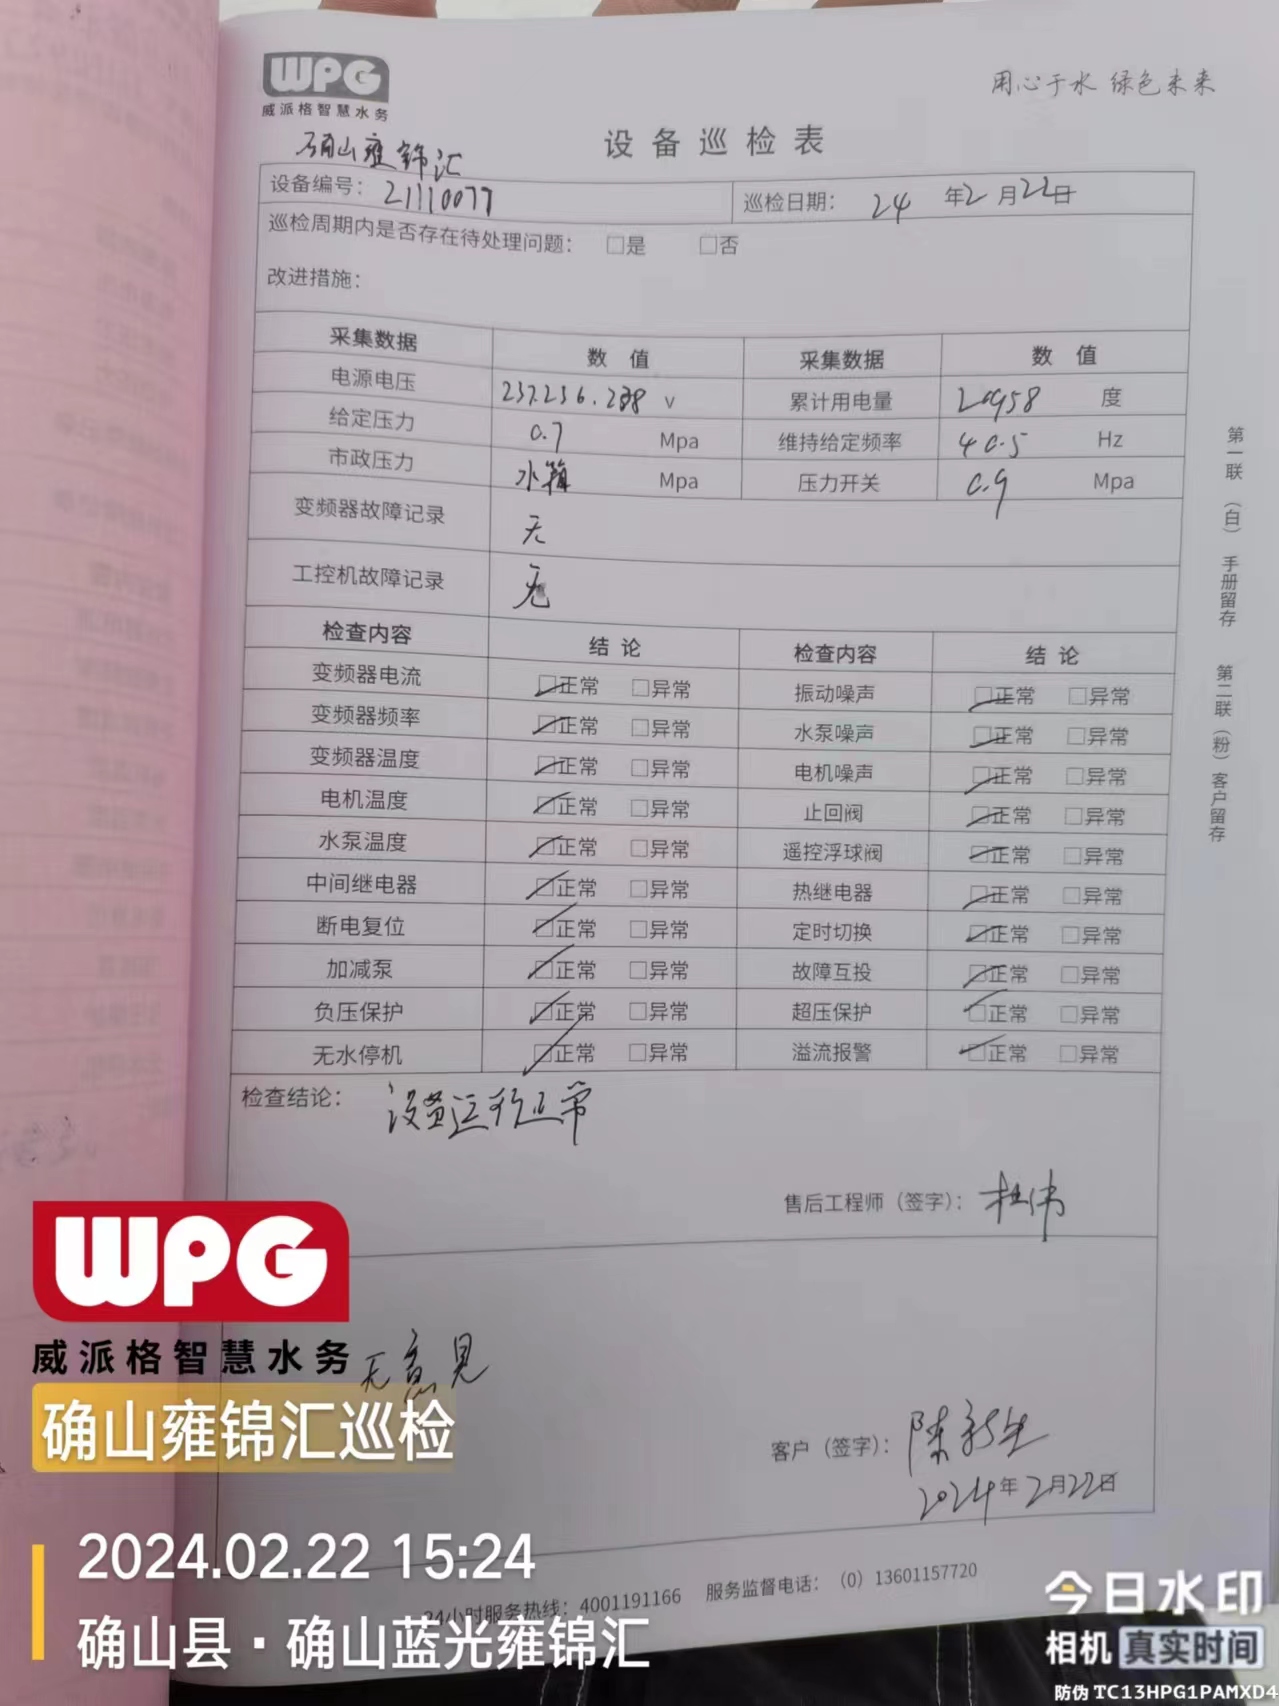 WPG
威派格智慧水务
用心于水 绿色未来
确山雍锦汇
设备巡检表
设备编号： 21110077 巡检日期： 24 年2月22日
巡检周期内是否存在待处理问题： □是 □否
改进措施：
采集数据 数 值 采集数据 数 值
电源电压 237.236.238 V 累计用电量 20958 度
给定压力 0.7 Mpa 维持给定频率 40.5 Hz
市政压力 水箱 Mpa 压力开关 0.9 Mpa
变频器故障记录 无
工控机故障记录 无
检查内容 结 论 检查内容 结 论
变频器电流 ☑正常 □异常 振动噪声 ☑正常 □异常
变频器频率 ☑正常 □异常 水泵噪声 ☑正常 □异常
变频器温度 ☑正常 □异常 电机噪声 ☑正常 □异常
电机温度 ☑正常 □异常 止回阀 ☑正常 □异常
水泵温度 ☑正常 □异常 遥控浮球阀 ☑正常 □异常
中间继电器 ☑正常 □异常 热继电器 ☑正常 □异常
断电复位 ☑正常 □异常 定时切换 ☑正常 □异常
加减泵 ☑正常 □异常 故障互投 ☑正常 □异常
负压保护 ☑正常 □异常 超压保护 ☑正常 □异常
无水停机 ☑正常 □异常 溢流报警 ☑正常 □异常
检查结论： 设备运行正常
售后工程师（签字）： 杜伟
无意见
客户（签字）： 陈新生
2024年2月22日
24小时服务热线：4001191166 服务监督电话：（0）13601157720
第一联（白）手册留存 第二联（粉）客户留存
WPG
威派格智慧水务
确山雍锦汇巡检
2024.02.22 15:24
确山县·确山蓝光雍锦汇
今日水印
相机 真实时间
防伪 TC13HPG1PAMXD4